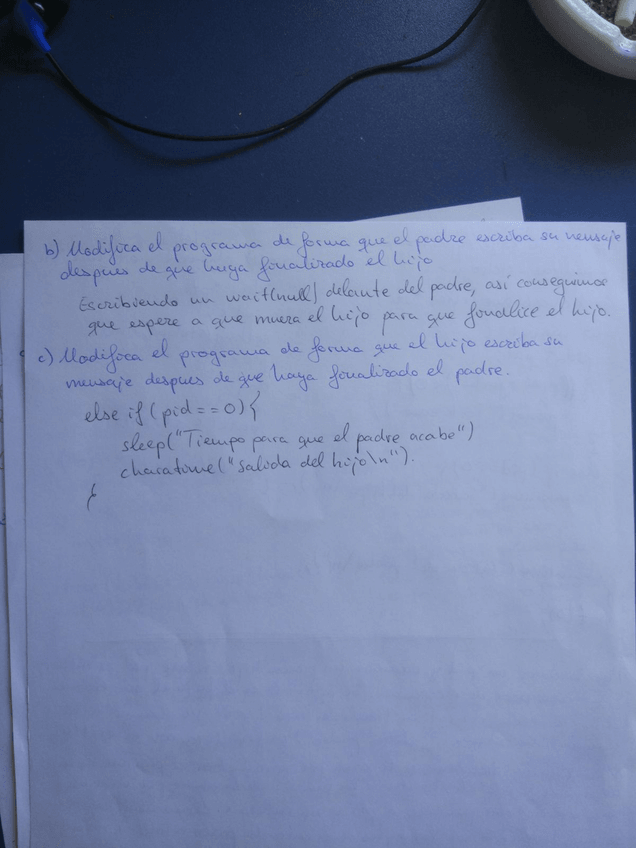 b) Modifica el programa de forma que el padre escriba su mensaje
despues de que haya finalizado el hijo
Escribiendo un wait(null) delante del padre, así conseguimos
que espere a que muera el hijo para que finalice el hijo.
c) Modifica el programa de forma que el hijo escriba su
mensaje despues de que haya finalizado el padre.
else if (pid == 0) {
sleep("Tiempo para que el padre acabe")
charatime("Salida del hijo\n").
}